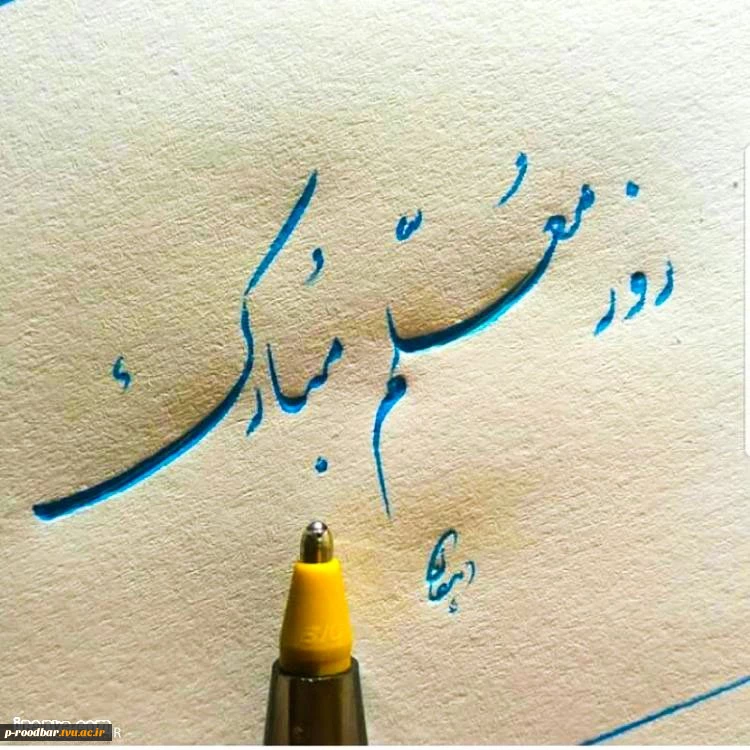 روز مُعلّم مُبارک
p-roodbar.tvu.ac.ir